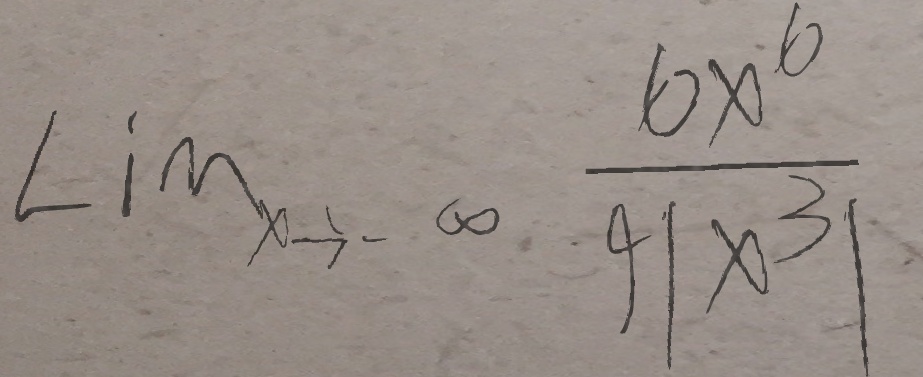 Lim x→-∞ 6x^6 / 9|x^3|